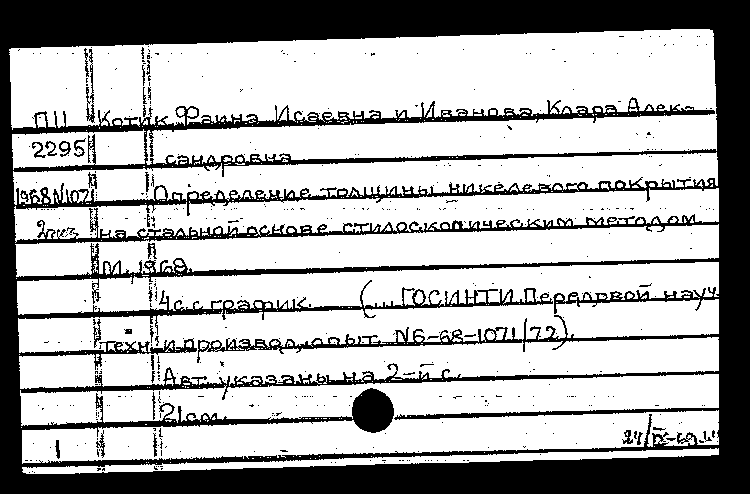 П11 Котик, Фаина Исаевна и Иванова, Клара Алек-
2295 сандровна
1968 N1071 Определение толщины никелевого покрытия
2экз на стальной основе стилоскопическим методом
М., 1968.
4 с. с график. (... ГОСИНТИ. Передовой науч.
техн. и производ. опыт. N6-68-1071/72).
Авт. указаны на 2-й с.
21 см.
1